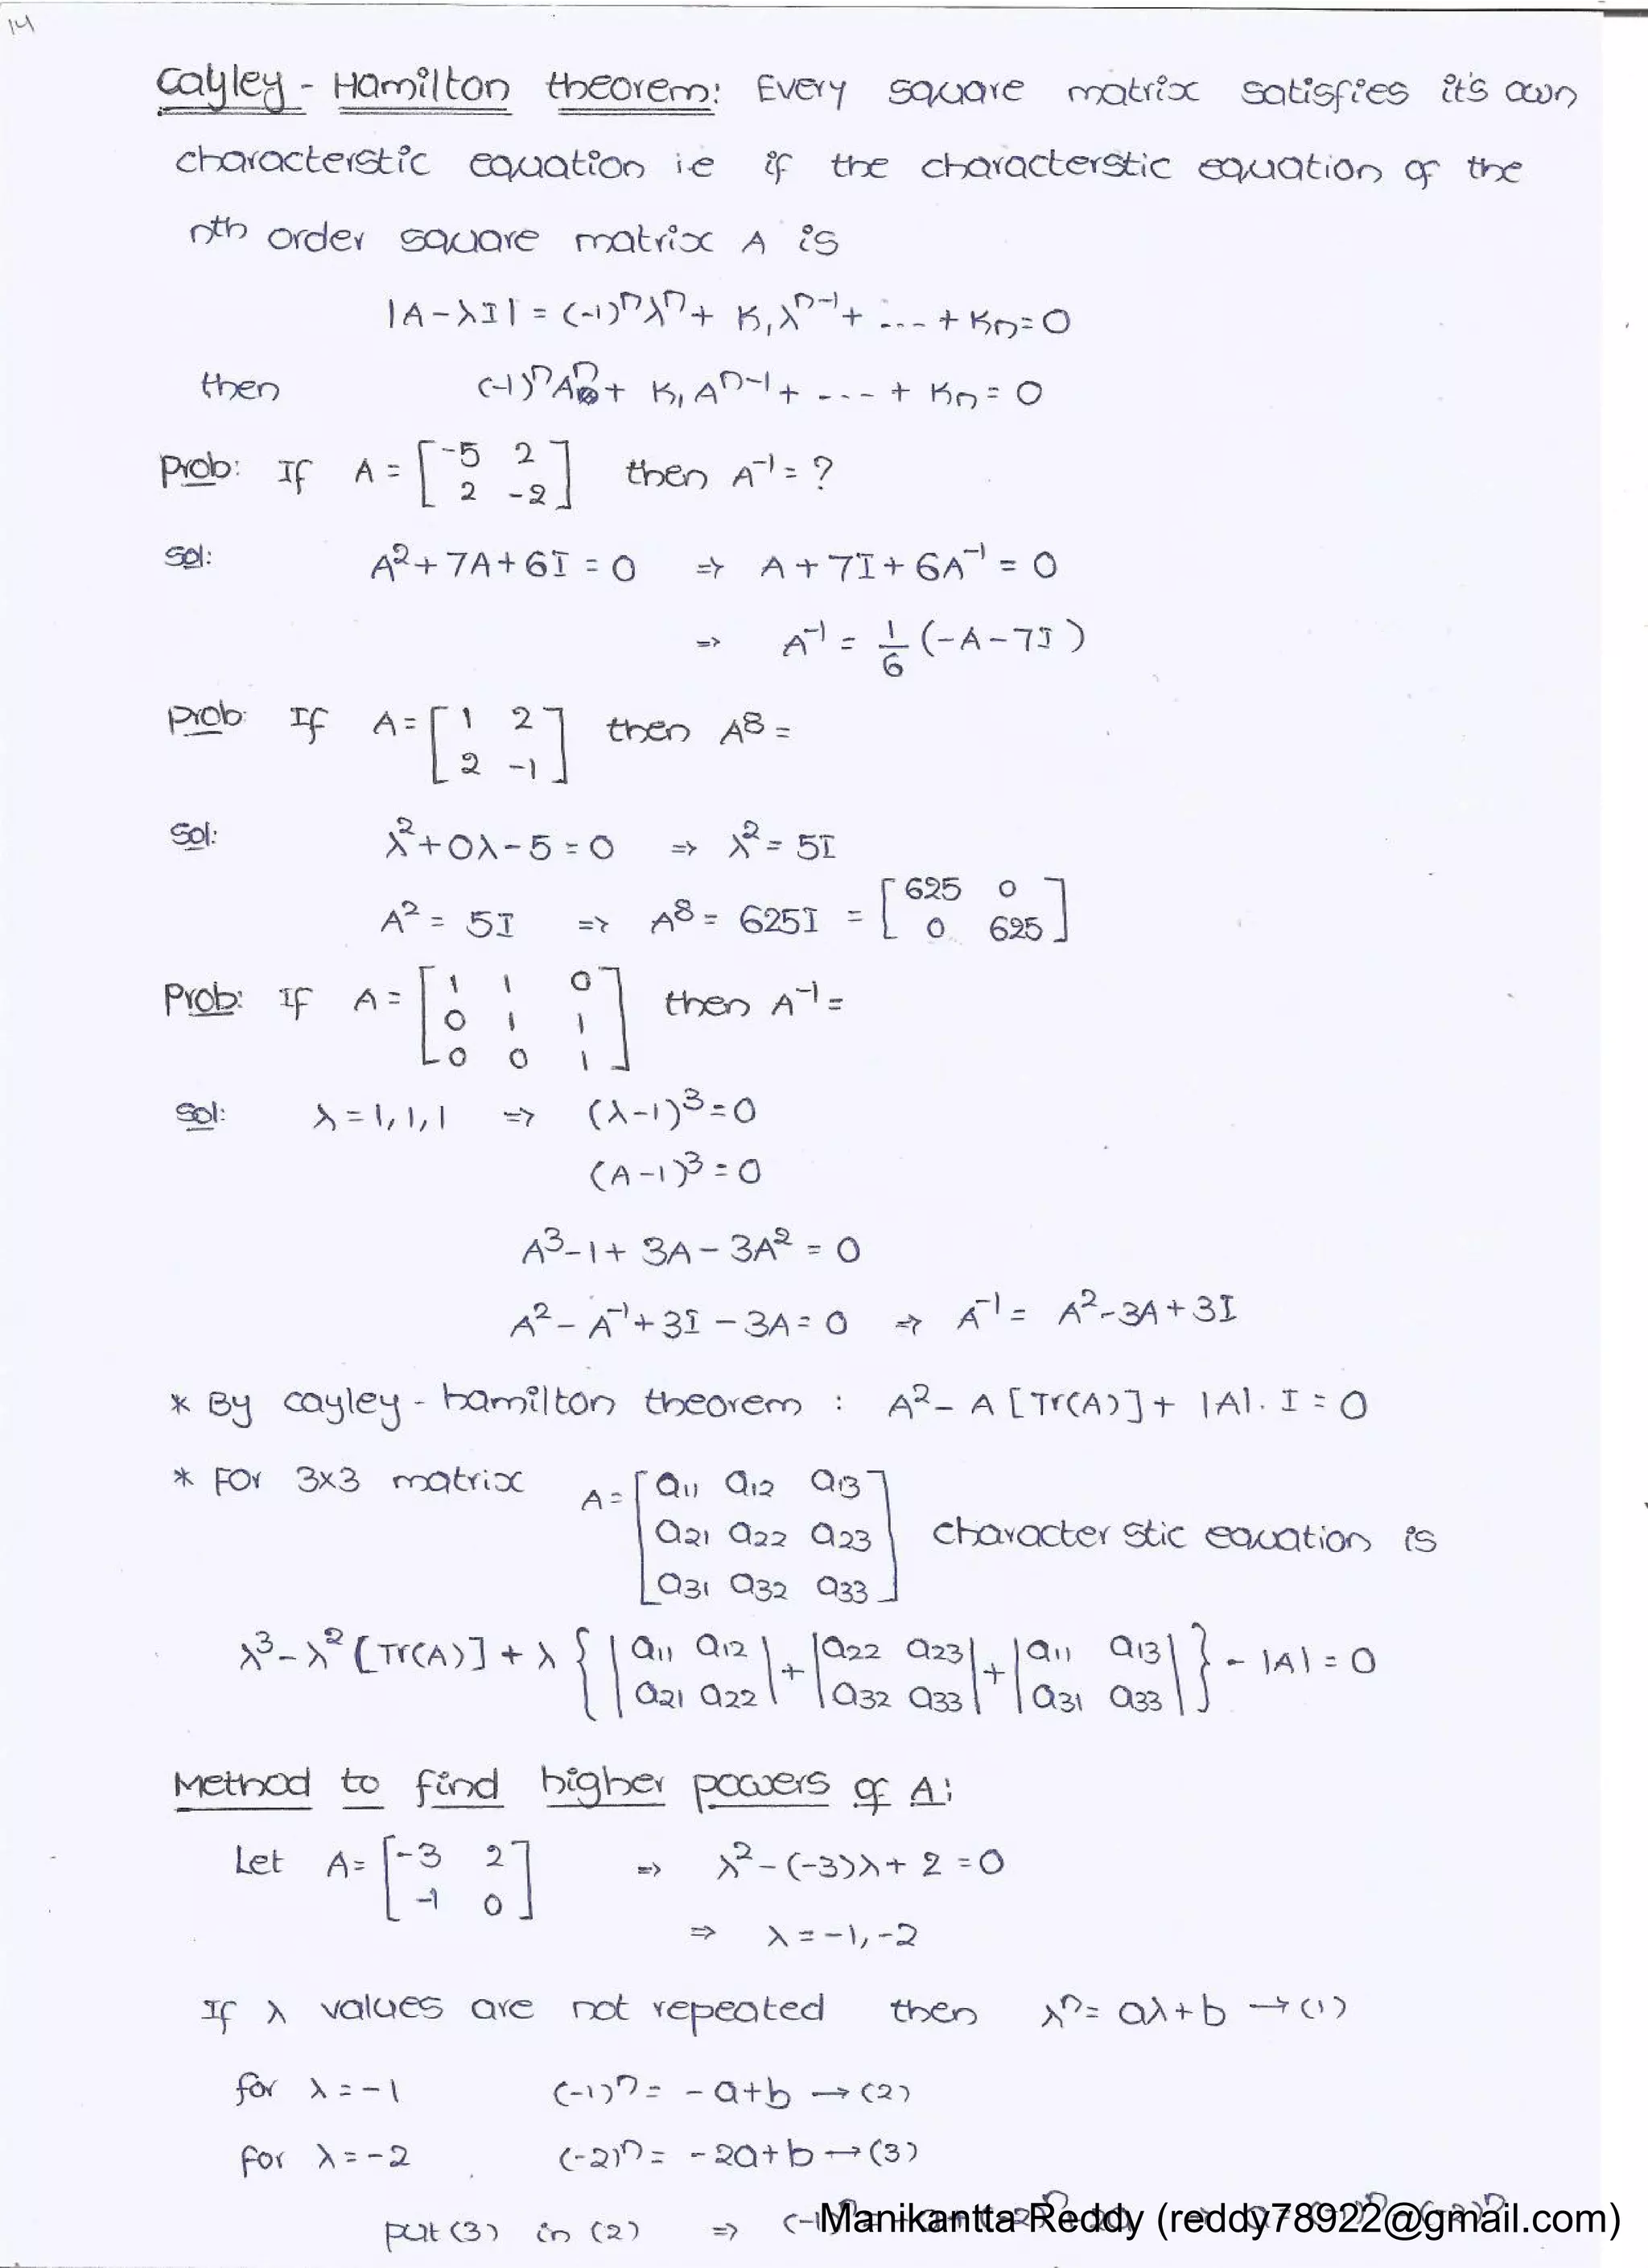 14
Cayley - Hamilton theorem: Every square matrix satisfies it's own
characterstic equation i.e if the characterstic equation of the
nth order square matrix A is
|A-λI| = (-1)ⁿλⁿ + K₁λⁿ⁻¹ + .... + Kₙ = 0
then (-1)ⁿAⁿ + K₁Aⁿ⁻¹ + .... + Kₙ = 0
Prob: If A = [-5 2; 2 -2] then A⁻¹ = ?
Sol: A² + 7A + 6I = 0 ⇒ A + 7I + 6A⁻¹ = 0
⇒ A⁻¹ = 1/6 (-A - 7I)
Prob: If A = [1 2; 2 -1] then A⁸ =
Sol: λ² + 0λ - 5 = 0 ⇒ λ² = 5I
A² = 5I ⇒ A⁸ = 625I = [625 0; 0 625]
Prob: If A = [1 1 0; 0 1 1; 0 0 1] then A⁻¹ =
Sol: λ = 1, 1, 1 ⇒ (λ-1)³ = 0
(A-1)³ = 0
A³ - 1 + 3A - 3A² = 0
A² - A⁻¹ + 3I - 3A = 0 ⇒ A⁻¹ = A² - 3A + 3I
* By cayley - hamilton theorem : A² - A [Tr(A)] + |A|. I = 0
* For 3x3 matrix A = [a₁₁ a₁₂ a₁₃; a₂₁ a₂₂ a₂₃; a₃₁ a₃₂ a₃₃] characterstic equation is
λ³ - λ² [Tr(A)] + λ { |a₁₁ a₁₂; a₂₁ a₂₂| + |a₂₂ a₂₃; a₃₂ a₃₃| + |a₁₁ a₁₃; a₃₁ a₃₃| } - |A| = 0
Method to find higher powers of A:
Let A = [-3 2; -1 0] ⇒ λ² - (-3)λ + 2 = 0
⇒ λ = -1, -2
If λ values are not repeated then λⁿ = aλ + b → (1)
for λ = -1 (-1)ⁿ = -a + b → (2)
for λ = -2 (-2)ⁿ = -2a + b → (3)
put (3) in (2) ⇒
Manikantta Reddy (reddy78922@gmail.com)